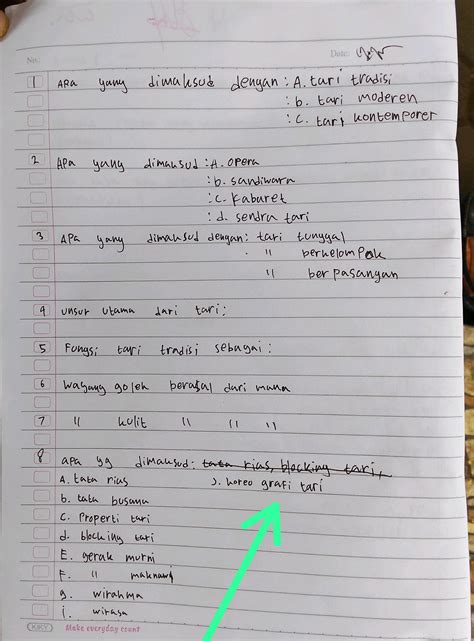 No.:
Date:
1 APA yang dimaksud dengan : A. tari tradisi
: b. tari moderen
: C. tari kontemporer
2 APA yang dimaksud : A. opera
: b. sandiwara
: C. kabaret
: d. sendra tari
3 APA yang dimaksud dengan: tari tunggal
. " berkelompok
" berpasangan
4 unsur utama dari tari;
5 Fungsi tari tradisi sebagai :
6 Wayang goleh berasal dari mana
7 " kulit " " "
8 apa yg dimaksud: tata rias, blocking tari,
A. tata rias J. koreo grafi tari
b. tata busana
C. Properti tari
d. blocking tari
E. gerak murni
F. " maknawi
g. wirahma
i. wirasa
KIKY Make everyday count